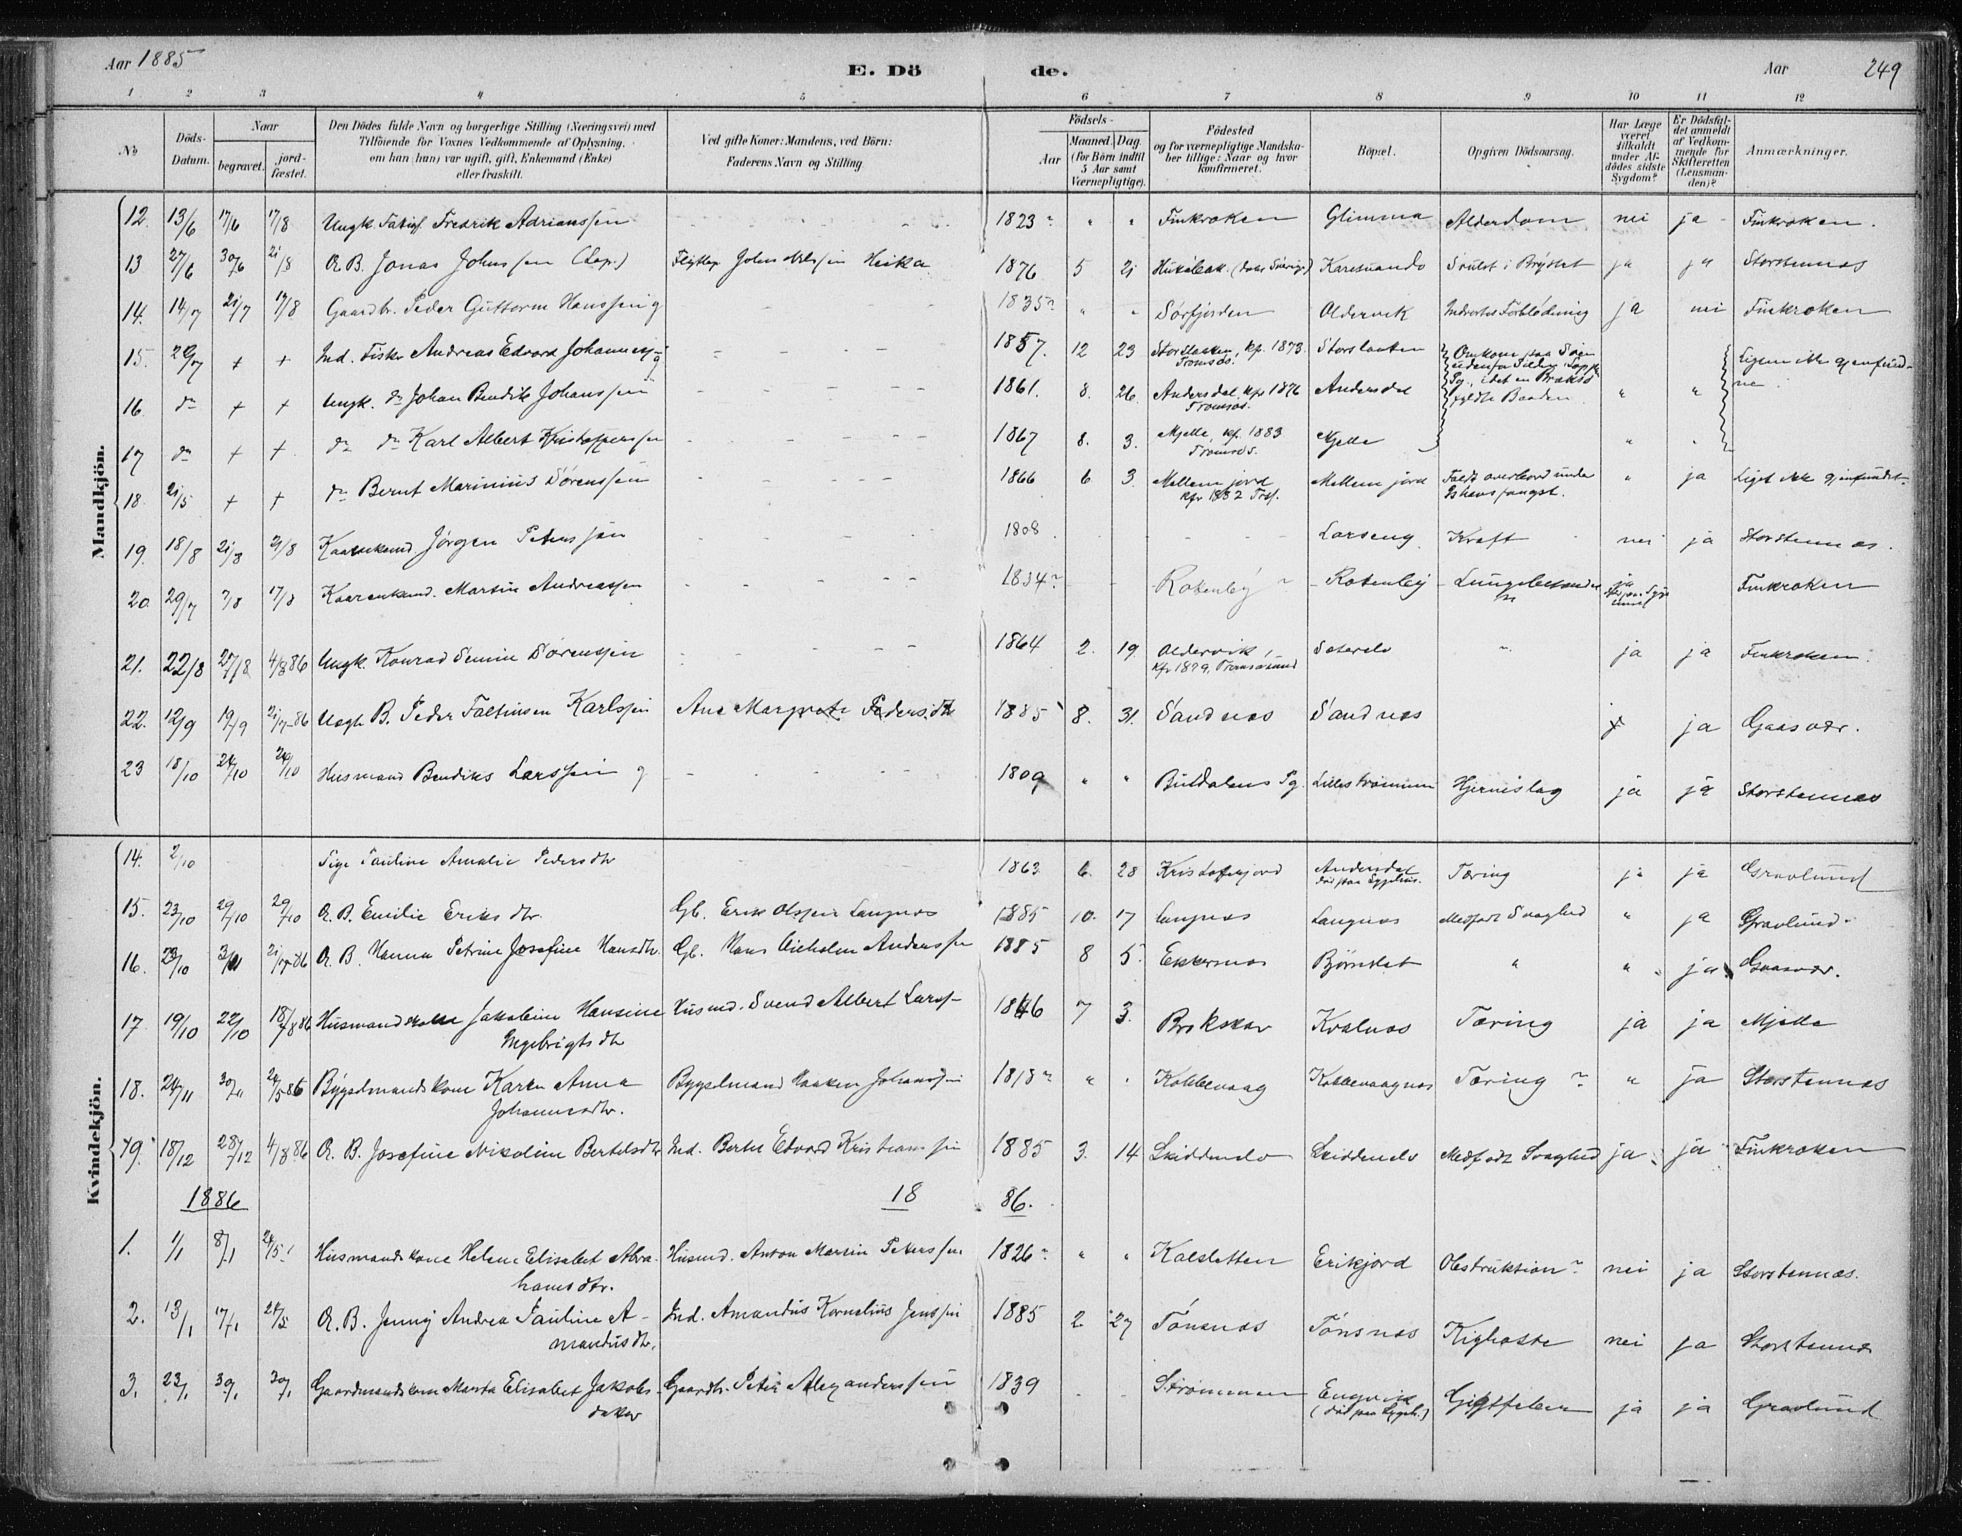 Aar 1885
E. Dö de.
Aar 249
1 2 3 4 5 6 7 8 9 10 11 12
No
Döds-Datum.
Naar
begravet.
jord-fæstet.
Den Dödes fulde Navn og borgerlige Stilling (Næringsvei) med
Tilföiende for Voxnes Vedkommende af Oplysning,
om han (hun) var ugift, gift, Enkemand (Enke)
eller fraskilt.
Ved gifte Koner: Mandens, ved Börn:
Faderens Navn og Stilling.
Födsels-
Aar
Maaned. Dag.
(for Börn indtil
5 Aar samt
Værnepligtige).
Födested
og for værnepligtige Mandska-
ber tillige: Naar og hvor
konfirmeret.
Bopæl.
Opgiven Dödsaarsag.
Har Læge
været
tilkaldt
under Af-
dödes sidste
Sygdom?
Er Dödsfal-
det anmeldt
af Vedkom-
mende for
Skifteretten
(Lensman-
den)?
Anmærkninger.
Mandkjön.
12. 13/6 17/6 17/8 Ungk. Fredrik Adrianssen 1823 " " Finkroken Glimma Alderdom nei ja Finkroken.
13 27/6 30/6 21/8 O.B. Jonas Johnssen (Lap.) Heika 1876 5 21 Karesuando Svulst i Brystet ja ja Storstennes
14. 14/7 21/7 17/8 Gaardbr. Peder Guttorm Hanssen g 1835 " " Sørfjorden Oldervik Indvortes Forblødning ja nei Finkroken
15. 20/7 + + Ind. Fisker Andreas Edvard Johannes 1857. 12 23 Storslaaten, kf. 1873 Tromsø. Storslaaten
16. do + + Ungk. do Johan Bendik Johanssen 1861. 8. 26. Andersdal, kfr 1876 Tromsø. Andersdal " "
17 do + + do do Karl Albert Kristoffersen 1867 8. 3. Mjelle, kf. 1883 Tromsø. Mjelle "
18. 21/5 + + do Bernt Marinius Sørenssen 1866 6 3. Mellemjord kfr 1882 Mellemjord Faldt overbord under Ishavsfangst. " ja Liget ikke gjenfundet.
19. 18/8 21/8 21/8 Jørgen Peterssen 1808 Larseng Kræft nei ja Storstennes.
20 29/7 7/8 17/8 Martin Andreassen 1834 Rotenby Rotenby ja Finkroken
21. 22/8 27/8 4/8 86 Ungk. Konrad Sørenssen 1864 2. 19. Oldervik, kfr 1879, Tromsøsund ja ja Finkroken.
22. 12/9 19/9 21/7-86 B. Peder Karlssen Ane Margrete Pedersdtr 1885 8. 31. Sandnes Sandnes ja Gaasvær.
23 18/10 24/10 24/10 Husmand Bendiks Larssen g 1809 " " Hjerneslag ja ja Storstennes
Kvindekjön.
14. 2/10 Pige Pauline Amalie Pedersdtr 1863 6. 28 Kristoferjord Andersdal Tæring ja ja Gravlund
15. 23/10 29/10 29/10 O.B. Emilie Eriksdtr. Gb. Erik Olssen Langnes 1885 10. 17 Langnes Langnes Medfødt Svaghed " ja Gravlund.
16. 23/10 O.B. Hanna Petrine Josefine Hansdtr. Gb. Hans Anderssen 1885 8 5. Ekkernes " " ja Gaasvær.
17 19/10 22/10 18/8 86 Husmandskone Jakobine Hansine Ingebrigtsdtr Husmd. Svend Albert Larss- 1846 7 3. Kvalnes Tæring ja ja Mjelle
18. 24/11 30/11 24/5 86 Bygselmandskone Karen Anna Johannesdtr. Bygselmand Haaken Johanssen 1818 " Kobbevaag Kobbevaagnes Tæring " ja Storstennes
19. 18/12 28/12 4/8 86 O.B. Josefine Nikoline Bertelsdtr Ind. Bertel Edvard Kristianssen 1885 3. 14 Skiddenelv Skiddenelv Medfødt Svaghed ja ja Finkroken
1886 18 86.
1. 1/1 8/1 24/5 Husmandskone Helene Elisabet Abrahamsdtr. Husmd. Anton Martin Peterssen 1826 " " Kalsletten Erikjord Obstruktion nei ja Storstennes.
2. 13/1 17/1 24/5 O.B. Jenny Andrea Pauline Amandusdtr. Ind. Amandus Kornelius Jenssen 1885 2 27 Tönsnes Tönsnes Kighoste nei ja Storstennes
3. 23/1 30/1 30/1 Gaardmandskone Marta Elisabet Jakobsdatter Gaardbr. Peter Alexanderssen 1839 Strømmen Engvik Gigtfeber ja ja Gravlund